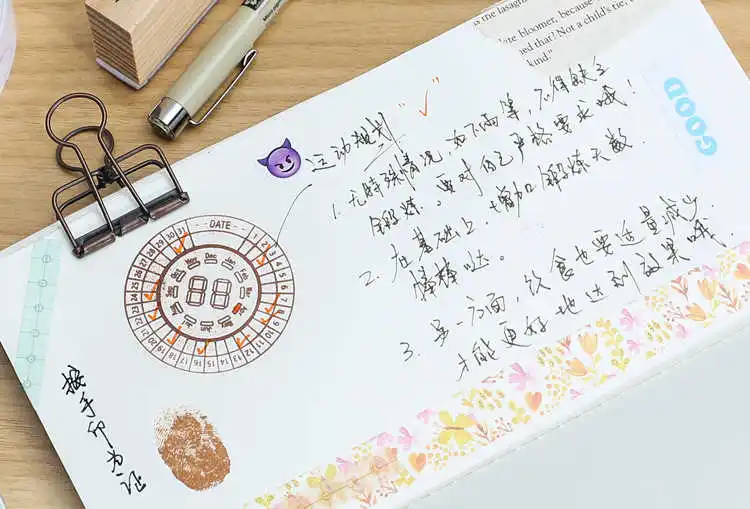 the lasagna
te bloomer, because
ed that? Not a child's tie,
kind."
GOOD
运动规划 "✓"
1. 无特殊情况，如下雨等，不得缺
锻炼。要对自己严格要求哦！
2. 在基础上，增加锻炼天数
棒棒哒。
3. 另一方面，饮食也要适量减少
才能更好地达到效果哦.
DATE
88
按手印为证